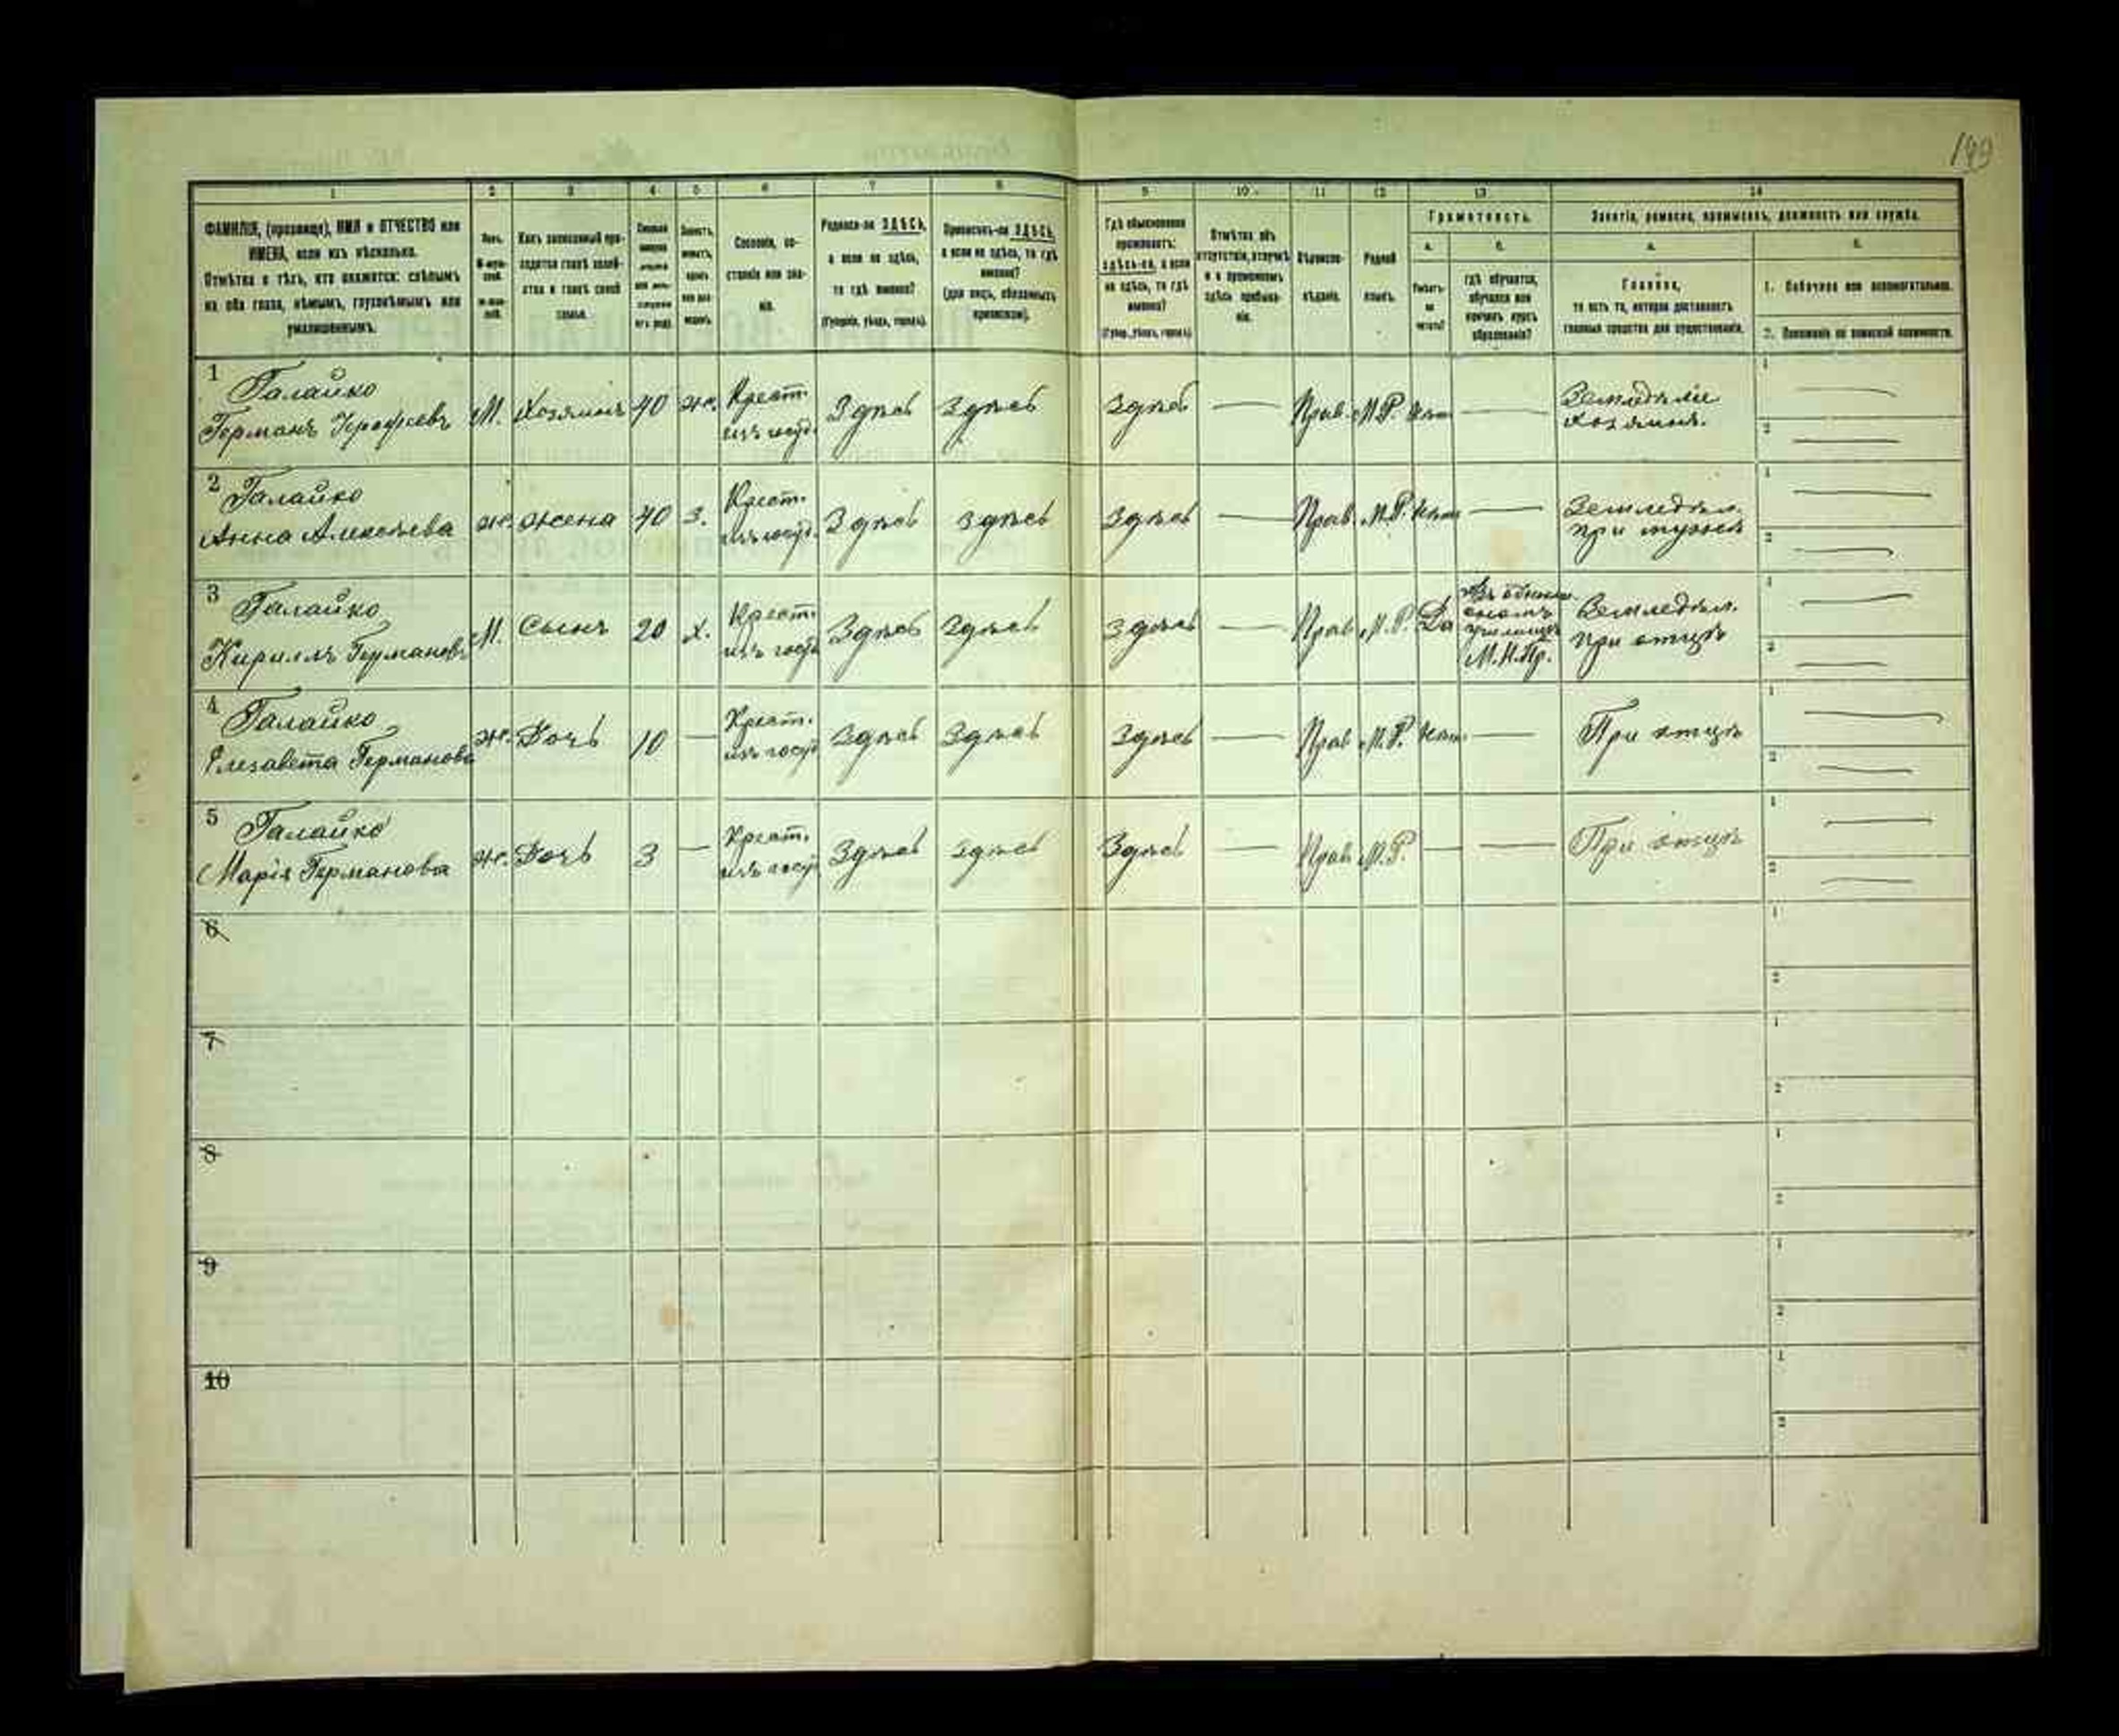 149
1 2 3 4 5 6 7 8 9 10 11 12 13 14
ФАМИЛІЯ, (прозвище), ИМЯ и ОТЧЕСТВО или
ИМЕНА, если ихъ нѣсколько.
Отмѣтка о тѣхъ, кто окажется: слѣпымъ
на оба глаза, нѣмымъ, глухонѣмымъ или
умалишеннымъ.
Полъ.
Какъ записанный при-
ходится главѣ хозяй-
ства и главѣ своей
семьи.
Сословіе, со-
стояніе или зва-
ніе.
Родился-ли ЗДѢСЬ,
а если не здѣсь,
то гдѣ именно?
(Губернія, уѣздъ, городъ).
Приписанъ-ли ЗДѢСЬ,
а если не здѣсь, то гдѣ
именно?
(для лицъ, обязанныхъ
припискою).
Гдѣ обыкновенно
проживаетъ:
здѣсь-ли, а если
не здѣсь, то гдѣ
именно?
(Губер., уѣздъ, городъ).
Отмѣтка объ
отсутствіи, отлучкѣ
и о временномъ
здѣсь пребыва-
ніи.
Вѣроиспо-
вѣданіе.
Родной
языкъ.
Грамотность.
а. б.
Умѣетъ-
ли
читать?
гдѣ обучается,
обучался или
кончилъ курсъ
образованія?
Занятіе, ремесло, промыселъ, должность или служба.
а. б.
Главное,
то есть то, которое доставляетъ
главныя средства для существованія.
1. Побочное или вспомогательное.
2. Положеніе по воинской повинности.
1 Галайко
Германъ М. Хозяинъ 40 ж. Крест. изъ госуд. Здѣсь Здѣсь Здѣсь — Прав. М.Р. Нѣтъ — Земледѣліе хозяинъ.
2 Галайко
Анна Алексѣева ж. жена 40 З. Крест. изъ госуд. Здѣсь Здѣсь Здѣсь — Прав. М.Р. Нѣтъ — Земледѣл. при мужѣ
3 Галайко
Кириллъ Германовъ М. Сынъ 20 Х. Крест. изъ госуд. Здѣсь Здѣсь Здѣсь — Прав. М.Р. Да училищѣ М.Н.Пр. Земледѣл. при отцѣ
4 Галайко
Елизавета Германова ж. Дочь 10 — Крест. изъ госуд. Здѣсь Здѣсь Здѣсь — Прав. М.Р. Нѣтъ — При отцѣ
5 Галайко
Марія Германова ж. Дочь 3 — Крест. изъ госуд. Здѣсь Здѣсь Здѣсь — Прав. М.Р. — — При отцѣ
6
7
8
9
10